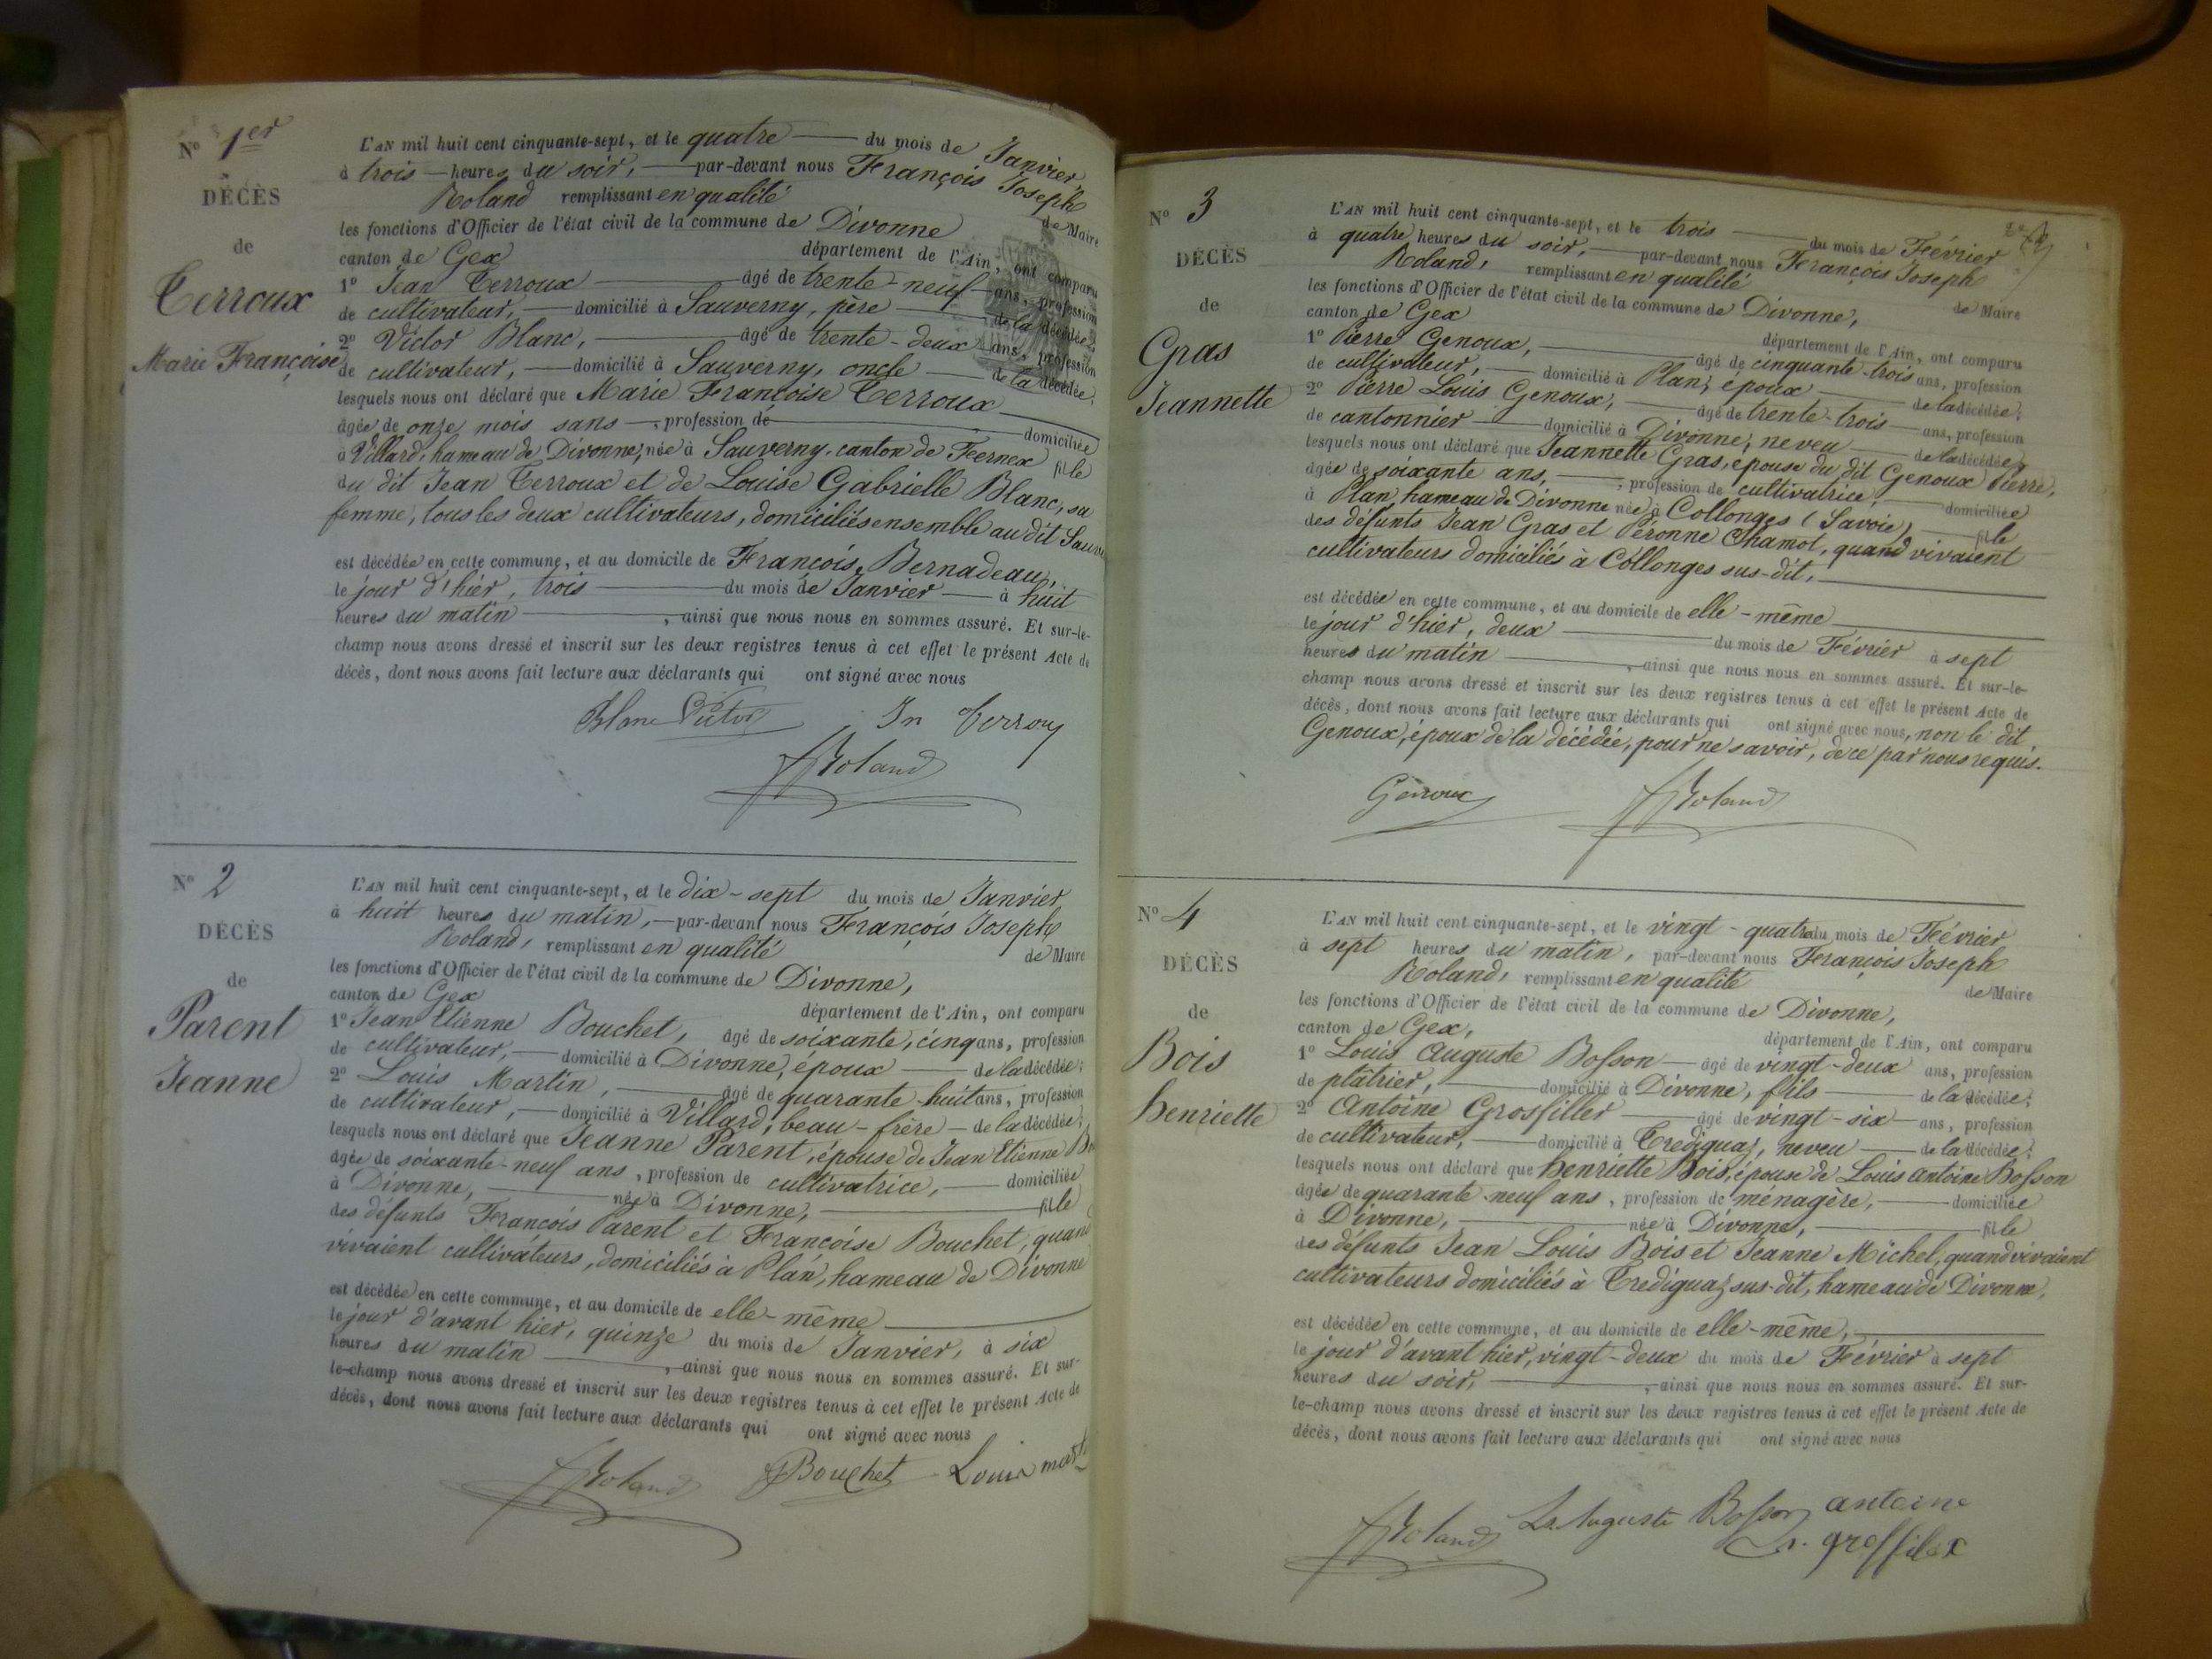 N° 1er
DÉCÈS
de
Terroux
Marie Françoise
L'AN mil huit cent cinquante-sept, et le quatre du mois de Janvier,
à trois heures du soir, par-devant nous François Joseph
Roland remplissant en qualité de Maire
les fonctions d'Officier de l'état civil de la commune de Divonne
canton de Gex département de l'Ain, ont comparu
1° Jean Terroux âgé de trente-neuf ans, profession
de cultivateur, domicilié à Sauverny, père de la décédée;
2° Victor Blanc, âgé de trente-deux ans, profession
de cultivateur, domicilié à Sauverny, oncle de la décédée;
lesquels nous ont déclaré que Marie Françoise Terroux
âgée de onze mois sans , profession de domiciliée
à Villard, hameau de Divonne, née à Sauverny, canton de Fernex fille
du dit Jean Terroux et de Louise Gabrielle Blanc, sa
femme, tous les deux cultivateurs, domiciliés ensemble au dit Sauv
est décédée en cette commune, et au domicile de François Bernadeau,
le jour d'hier, trois du mois de Janvier à huit
heures du matin , ainsi que nous nous en sommes assuré. Et sur-le-
champ nous avons dressé et inscrit sur les deux registres tenus à cet effet le présent Acte de
décès, dont nous avons fait lecture aux déclarants qui ont signé avec nous
Blanc Victor Jn Terroux
Roland
N° 2
DÉCÈS
de
Parent
Jeanne
L'AN mil huit cent cinquante-sept, et le dix-sept du mois de Janvier
à huit heures du matin, par-devant nous François Joseph
Roland, remplissant en qualité de Maire
les fonctions d'Officier de l'état civil de la commune de Divonne,
canton de Gex département de l'Ain, ont comparu
1° Jean Etienne Bouchet, âgé de soixante, cinq ans, profession
de cultivateur, domicilié à Divonne, époux de la décédée;
2° Louis Martin, âgé de quarante-huit ans, profession
de cultivateur, domicilié à Villard, beau-frère de la décédée;
lesquels nous ont déclaré que Jeanne Parent, épouse de Jean Etienne Bo
âgée de soixante-neuf ans, profession de cultivatrice, domiciliée
à Divonne, née à Divonne, fille
des défunts François Parent et Françoise Bouchet, quand
vivaient cultivateurs, domiciliés à Plan, hameau de Divonne
est décédée en cette commune, et au domicile de elle-même
le jour d'avant hier, quinze du mois de Janvier, à six
heures du matin , ainsi que nous nous en sommes assuré. Et sur-
le-champ nous avons dressé et inscrit sur les deux registres tenus à cet effet le présent Acte de
décès, dont nous avons fait lecture aux déclarants qui ont signé avec nous
Roland Bouchet Louis mart
N° 3
DÉCÈS
de
Gras
Jeannette
L'AN mil huit cent cinquante-sept, et le trois du mois de Février
à quatre heures du soir, par-devant nous François Joseph
Roland, remplissant en qualité de Maire
les fonctions d'Officier de l'état civil de la commune de Divonne,
canton de Gex département de l'Ain, ont comparu
1° Pierre Genoux, âgé de cinquante-trois ans, profession
de cultivateur, domicilié à Plan, époux de la décédée;
2° Pierre Louis Genoux, âgé de trente-trois ans, profession
de cantonnier domicilié à Divonne, neveu de la décédée;
lesquels nous ont déclaré que Jeannette Gras, épouse du dit Genoux Pierre,
âgée de soixante ans, , profession de cultivatrice, domiciliée
à Plan, hameau de Divonne née à Collonges (Savoie) fille
des défunts Jean Gras et Péronne Chamot, quand vivaient
cultivateurs domiciliés à Collonges sus-dit,
est décédée en cette commune, et au domicile de elle-même
le jour d'hier, deux du mois de Février à sept
heures du matin , ainsi que nous nous en sommes assuré. Et sur-le-
champ nous avons dressé et inscrit sur les deux registres tenus à cet effet le présent Acte de
décès, dont nous avons fait lecture aux déclarants qui ont signé avec nous, non le dit
Genoux, époux de la décédée, pour ne savoir, de ce par nous requis.
Genoux Roland
N° 4
DÉCÈS
de
Bois
henriette
L'AN mil huit cent cinquante-sept, et le vingt-quatre du mois de Février
à sept heures du matin, par-devant nous François Joseph
Roland, remplissant en qualité de Maire
les fonctions d'Officier de l'état civil de la commune de Divonne,
canton de Gex, département de l'Ain, ont comparu
1° Louis Auguste Bosson âgé de vingt-deux ans, profession
de plâtrier, domicilié à Divonne, fils de la décédée;
2° Antoine Grosfiller âgé de vingt-six ans, profession
de cultivateur, domicilié à Crediguaz, neveu de la décédée;
lesquels nous ont déclaré que henriette Bois, épouse de Louis Antoine Bosson
âgée de quarante-neuf ans, profession de ménagère, domiciliée
à Divonne, née à Divonne, fille
des défunts Jean Louis Bois et Jeanne Michel, quand vivaient
cultivateurs domiciliés à Crediguaz sus-dit, hameau de Divonne,
est décédée en cette commune, et au domicile de elle-même,
le jour d'avant hier, vingt-deux du mois de Février à sept
heures du soir, , ainsi que nous nous en sommes assuré. Et sur-
le-champ nous avons dressé et inscrit sur les deux registres tenus à cet effet le présent Acte de
décès, dont nous avons fait lecture aux déclarants qui ont signé avec nous
Roland Ls Auguste Bosson antoine
groffilex